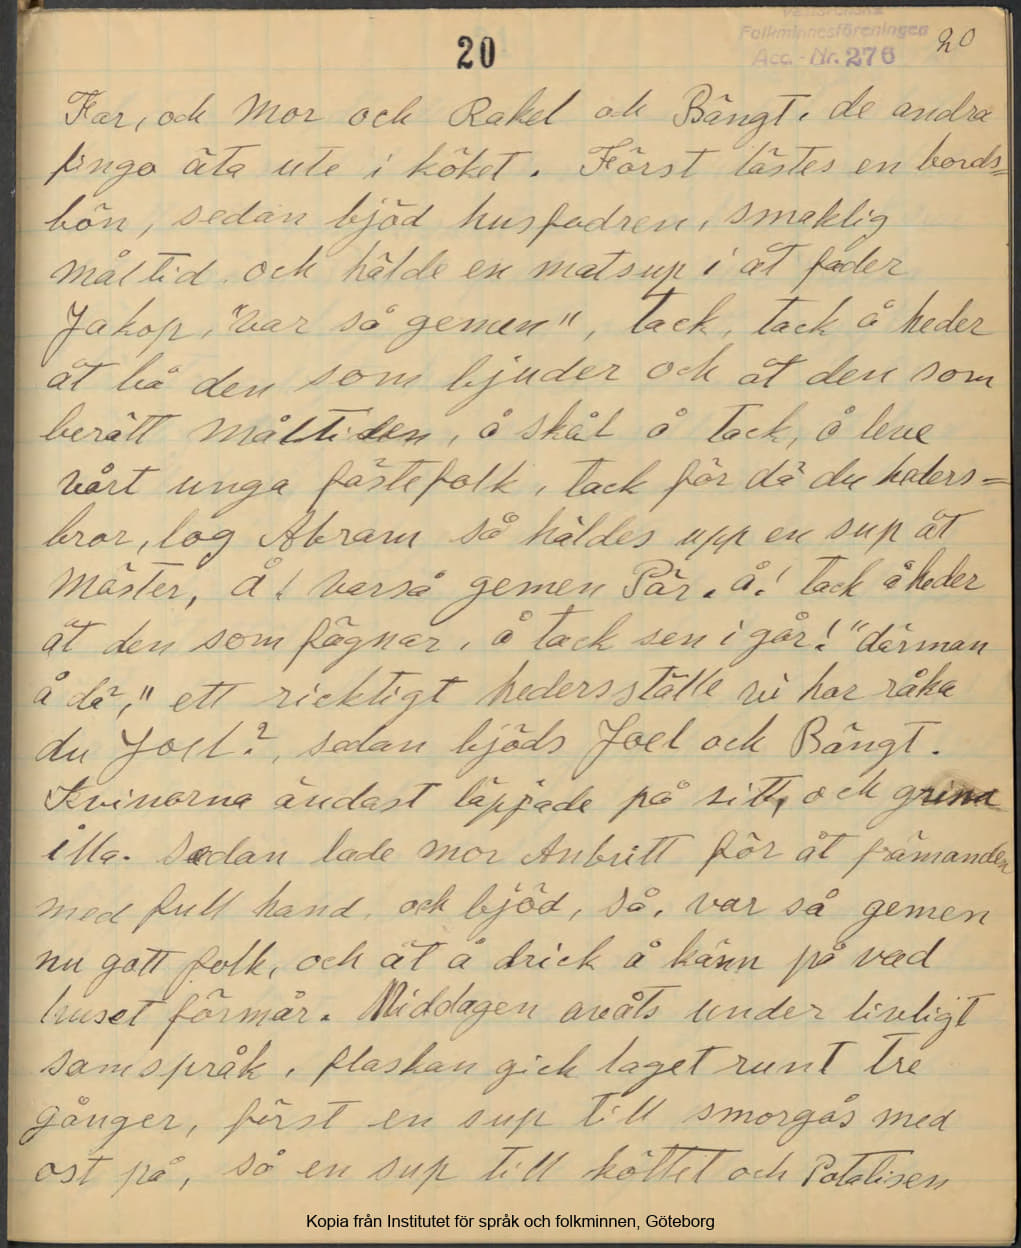 Västsvenska
Folkminnesföreningen
Acc. - Nr. 276
20
20
Far, och Mor och Rakel och Bängt. de andra
fingo äta ute i köket. Först lästes en bords=
bön, sedan bjöd husfadren, smaklig
måltid och hälde en matsup i åt fader
Jakop, "var så gemen", tack, tack å heder
åt bå den som bjuder och åt den som
berätt måltiden, å skål å tack, å leve
vårt unga fästefolk, tack för dä du heders=
bror, log Abram så häldes upp en sup åt
Mäster, Å! varså gemen Pär. å! tack å heder
åt den som fägnar, å tack sen i går! "därman
å dä," ett ricktigt hedersställe vi har råka
du Joel?, sedan bjöds Joel och Bängt.
Kvinorna ändast läppjade på sitt, och grina
illa. Sedan lade mor Anbritt för åt främanden
med full hand, och bjöd, så, var så gemen
nu gott folk, och ät å drick å känn på vad
huset förmår. Middagen avåts under livligt
samspråk, flaskan gick laget runt tre
gånger, först en sup till smorgås med
ost på, så en sup till köttet och Potatisen
Kopia från Institutet för språk och folkminnen, Göteborg